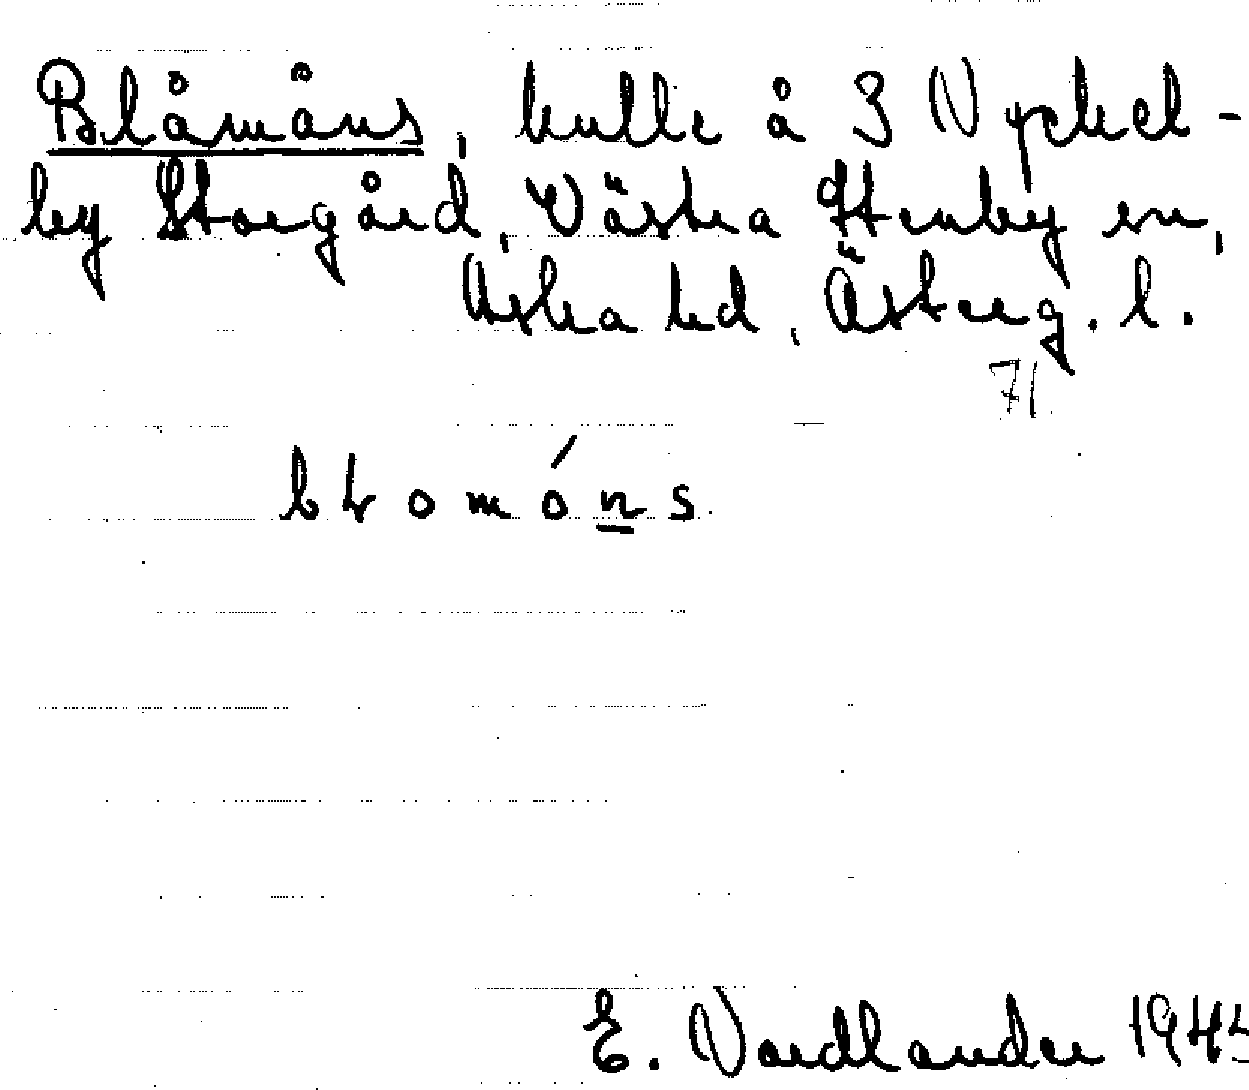 Blåmåns, kulle å 3 Nyckel-
by Storgård, Västra Stenby sn,
Aska hd, Österg. l.
71
E. Nordlander 1945